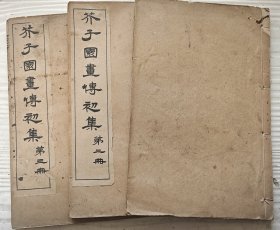 芥子園畫傳初集 第三冊
芥子園畫傳初集 第二冊